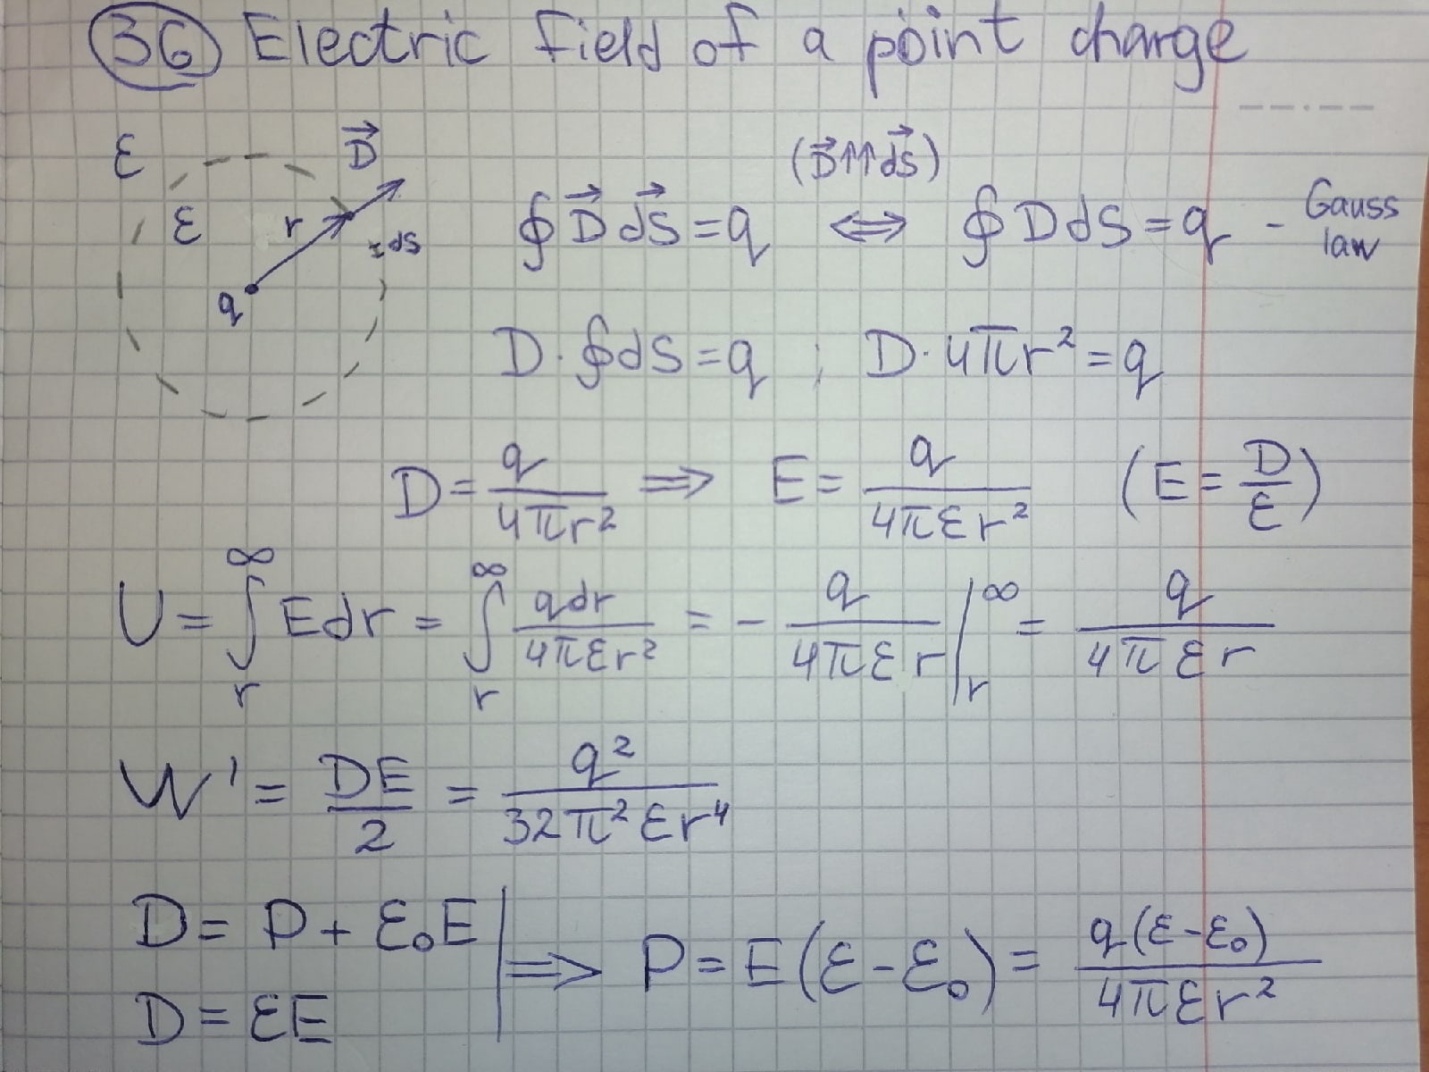 36 Electric field of a point charge
ε D⃗
ε r ds
q
(D⃗↑↑dS⃗)
∮D⃗dS⃗=q ⇔ ∮DdS=q - Gauss law
D·∮dS=q ; D·4πr²=q
D=q/4πr² ⇒ E=q/4πεr² (E=D/ε)
U=∫_r^∞ Edr=∫_r^∞ qdr/4πεr² = -q/4πεr |_r^∞ = q/4πεr
W'=DE/2=q²/32π²εr⁴
D=P+ε₀E
D=εE | ⇒ P=E(ε-ε₀)=q(ε-ε₀)/4πεr²